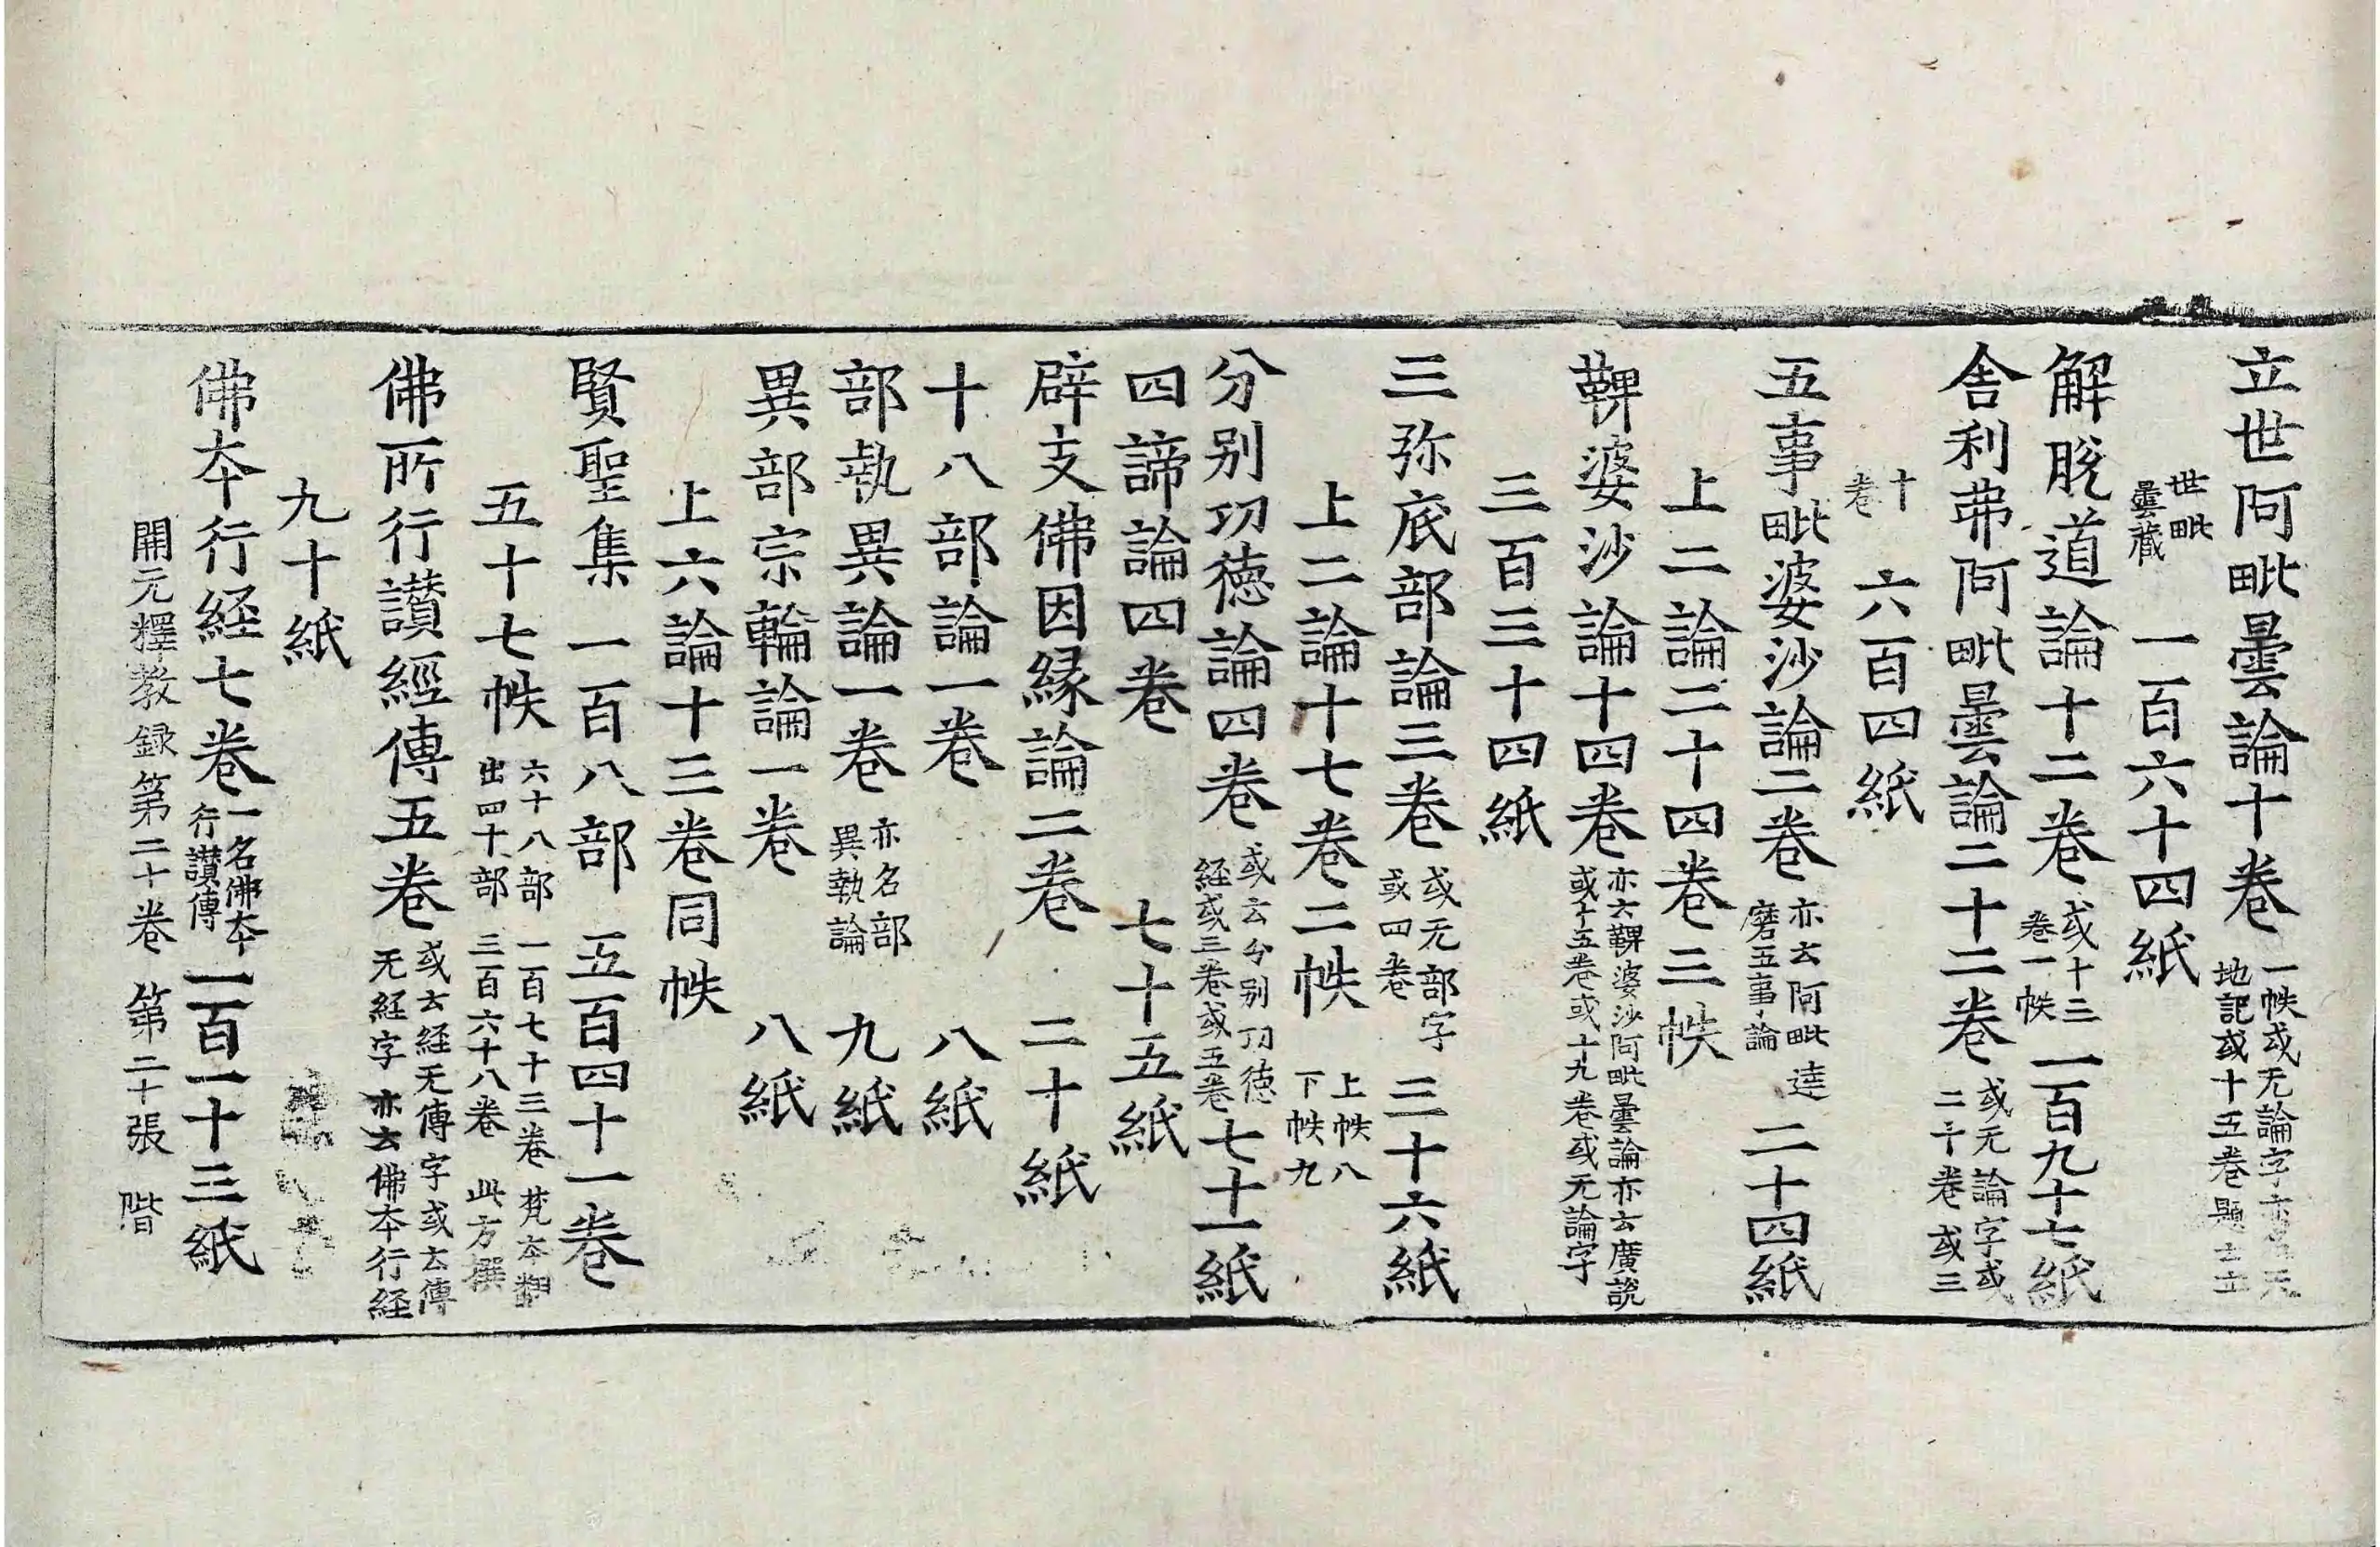 立世阿毗曇論十卷 一帙或无論字亦名天
地記或十五卷題云立
世毗
曇藏 一百六十四紙
解脫道論十二卷 或十三
卷一帙 一百九十七紙
舎利弗阿毗曇論二十二卷 或无論字或
二十卷或三
十
卷 六百四紙
五事毗婆沙論二卷 亦云阿毗達
磨五事論 二十四紙
上二論二十四卷三帙
鞞婆沙論十四卷 亦云鞞婆沙阿毗曇論亦云廣說
或十五卷或十九卷或无論字
三百三十四紙
三弥底部論三卷 或无部字
或四卷 三十六紙
上二論十七卷二帙 上帙八
下帙九
分别功徳論四卷 或云分别功徳
経或三卷或五卷 七十一紙
四諦論四卷 七十五紙
辟支佛因緣論二卷 二十紙
十八部論一卷 八紙
部執異論一卷 亦名部
異執論 九紙
異部宗輪論一卷 八紙
上六論十三卷同帙
賢聖集 一百八部 五百四十一卷
五十七帙 六十八部 一百七十三卷 梵本翻
出四十部 三百六十八卷 此方撰
佛所行讃經傳五卷 或云経无傳字或云傳
无経字亦云佛本行経
九十紙
佛本行経七卷 一名佛本
行讃傳 一百一十三紙
開元釋教録第二十卷 第二十張 階